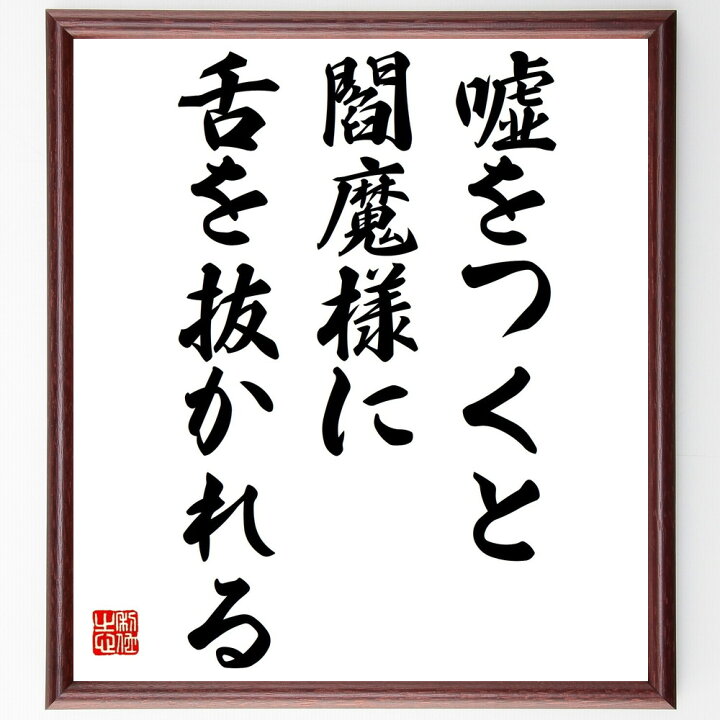 嘘をつくと
閻魔様に
舌を抜かれる